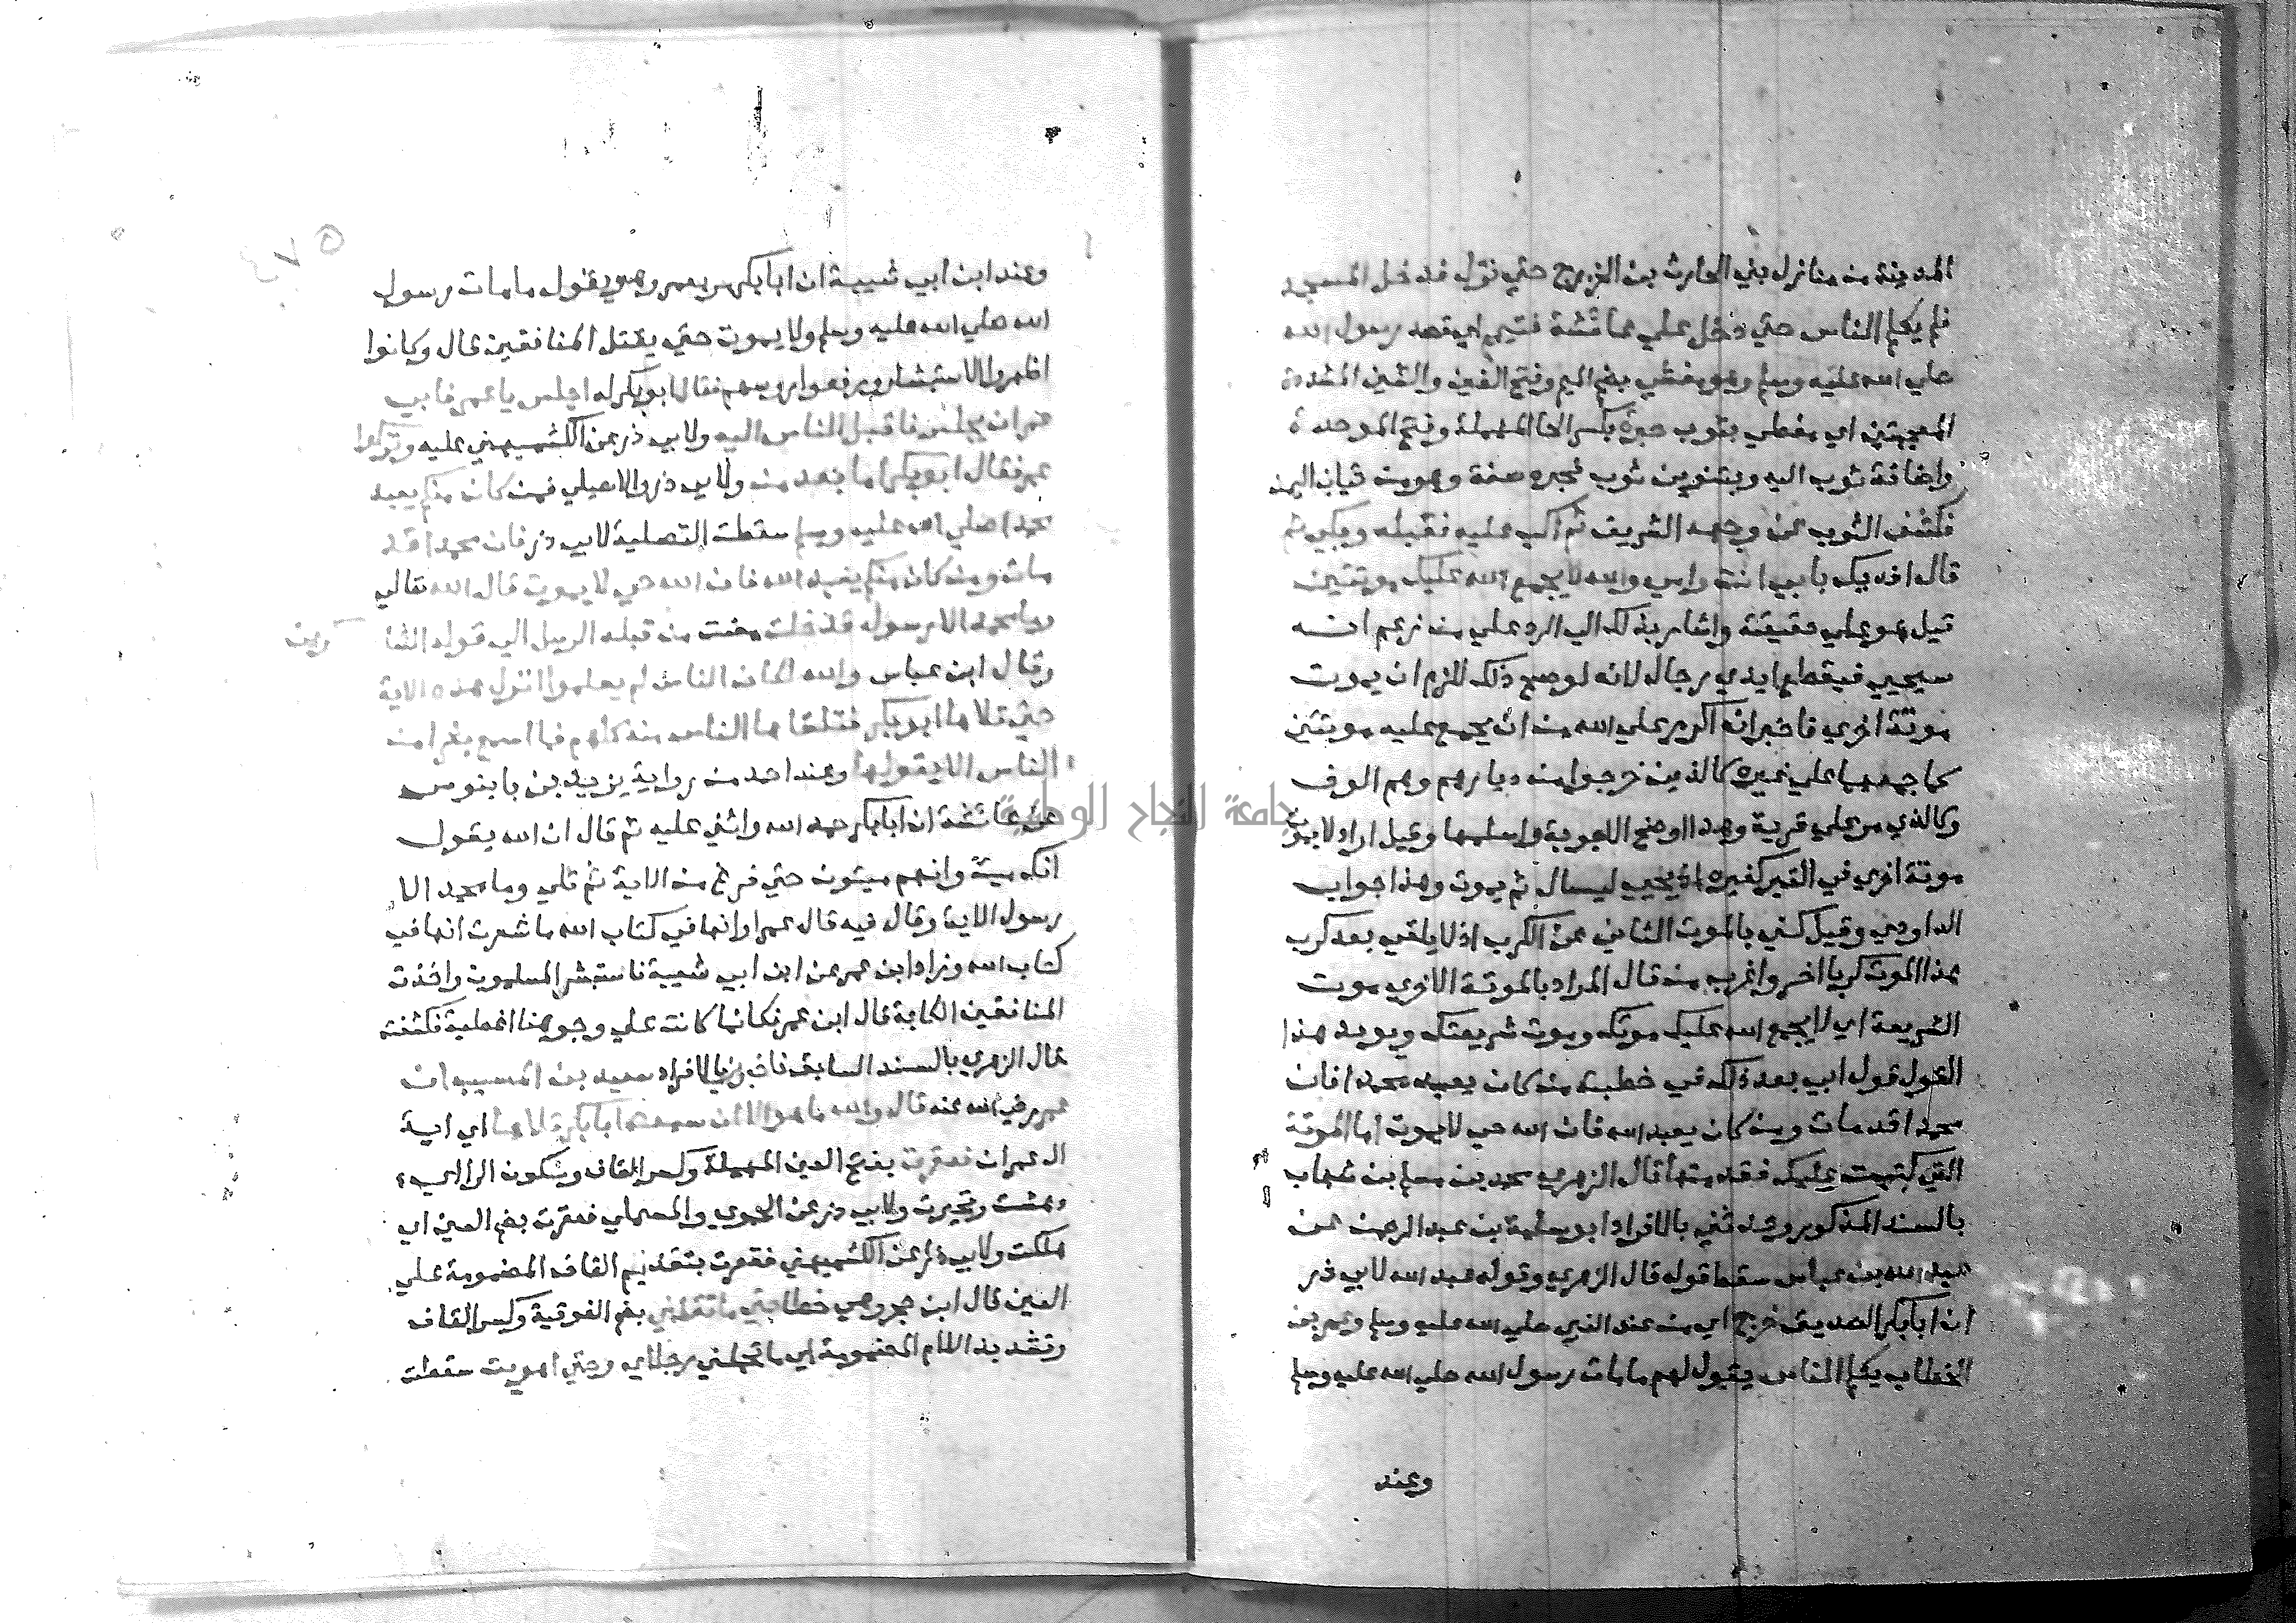 المدينة من منازل بني الحارث بن الخزرج حتي نزل فدخل المسجد
فلم يكلم الناس حتي دخل علي عائشة فتيمم اي قصد رسول الله
صلي الله عليه وسلم وهو مغشي بضم الميم وفتح الغين والشين المشددة
المعجمتين اي مغطي بثوب حبرة بكسر الحا المهملة وفتح الموحدة
واضافة ثوب اليه وبتنوين ثوب فحبره صفة وهو من ثياب اليمن
فكشف الثوب عن وجهه الشريف ثم اكب عليه فقبله وبكي ثم
قال افديك بابي انت وامي والله لا يجمع الله عليك موتتين
قيل هو علي حقيقته واشار بذلك الي الرد علي من زعم انه
سيحيي فيقطع ايدي رجال لانه لو صح ذلك للزم ان يموت
موتة اخري فاخبر انه اكرم علي الله من ان يجمع عليه موتتين
كما جمعهما علي غيره كالذين خرجوا من ديارهم وهم الوف
وكالذي مر علي قرية وهذا اوضح الاجوبة واسلمها وقيل اراد لا يموت
موتة اخري في القبر كغيره اذ يحيي ليسال ثم يموت وهذا جواب
الداودي وقيل كني بالموت الثاني عن الكرب اذ لا يلقي بعد كرب
هذا الموت كربا اخر واغرب من قال المراد بالموتة الاخري موت
الشريعة اي لا يجمع الله عليك موتك وموت شريعتك ويويد هذا
القول قول ابي بعد ذلك في خطبته من كان يعبد محمدا فان
محمدا قد مات ومن كان يعبد الله فان الله حي لا يموت اما الموتة
التي كتبت عليك فقد متها قال الزهري محمد بن مسلم بن شهاب
بالسند المذكور وحدثني بالافراد ابو سلمة بن عبد الرحمن عن
عبد الله بن عباس سقط قوله قال الزهري وقوله عبد الله لابي ذر
ان ابا بكر الصديق خرج اي من عند النبي صلي الله عليه وسلم وعمر بن
الخطاب يكلم الناس يقول لهم ما مات رسول الله صلي الله عليه وسلم
وعند
وعند ابن ابي شيبة ان ابا بكر مر بعمر وهو يقول ما مات رسول
الله صلي الله عليه وسلم ولا يموت حتي يقتل المنافقين قال وكانوا
اظهروا الاستبشار ورفعوا روسهم فقال ابو بكر له اجلس يا عمر فابي
عمر ان يجلس فاقبل الناس اليه ولابي ذر عن الكشميهني عليه وتركوا
عمر فقال ابو بكر اما بعد من ولابي ذر والاصيلي فمن كان منكم يعبد
محمدا صلي الله عليه وسلم سقطت التصلية لابي ذر فان محمدا قد
مات ومن كان منكم يعبد الله فان الله حي لا يموت قال الله تعالي
وما محمد الا رسول قد خلت مضت من قبله الرسل الي قوله الشا
كرين
وقال ابن عباس والله لكان الناس لم يعلموا انزل هذه الاية
حتي تلاها ابو بكر فتلقاها الناس منه كلهم فما اسمع بشرا من
الناس الا يتلوها وعند احمد من رواية يزيد بن بابنوس
عن عائشة ان ابا بكر حمد الله واثني عليه ثم قال ان الله يقول
انك ميت وانهم ميتون حتي فرغ من الاية ثم تلي وما محمد الا
رسول الاية وقال فيه قال عمر اوانها في كتاب الله ما شعرت انها في
كتاب الله وزاد ابن عمر عن ابن ابي شيبة فاستبشر المسلمون واخذت
المنافقين الكابة قال ابن عمر فكانما كانت علي وجوهنا اغطية فكشفت
قال الزهري بالسند السابق فاخبرني بالافراد سعيد بن المسيب ان
عمر رضي الله عنه قال والله ما هو الا ان سمعت ابا بكر تلاها اي اية
ال عمران فعقرت بفتح العين المهملة وكسر القاف وسكون الرا اي
دهشت وتحيرت ولابي ذر عن الحموي والمستملي فعقرت بضم العين اي
هلكت ولابي ذر عن الكشميهني فقعرت بتقديم القاف المضمومة علي
العين قال ابن حجر وهي خطا حتي ما تقلني بضم الفوقية وكسر القاف
وتشديد اللام المضمومة اي ما تحملني رجلاي وحتي اهويت سقطت
جامعة النجاح الوطنية